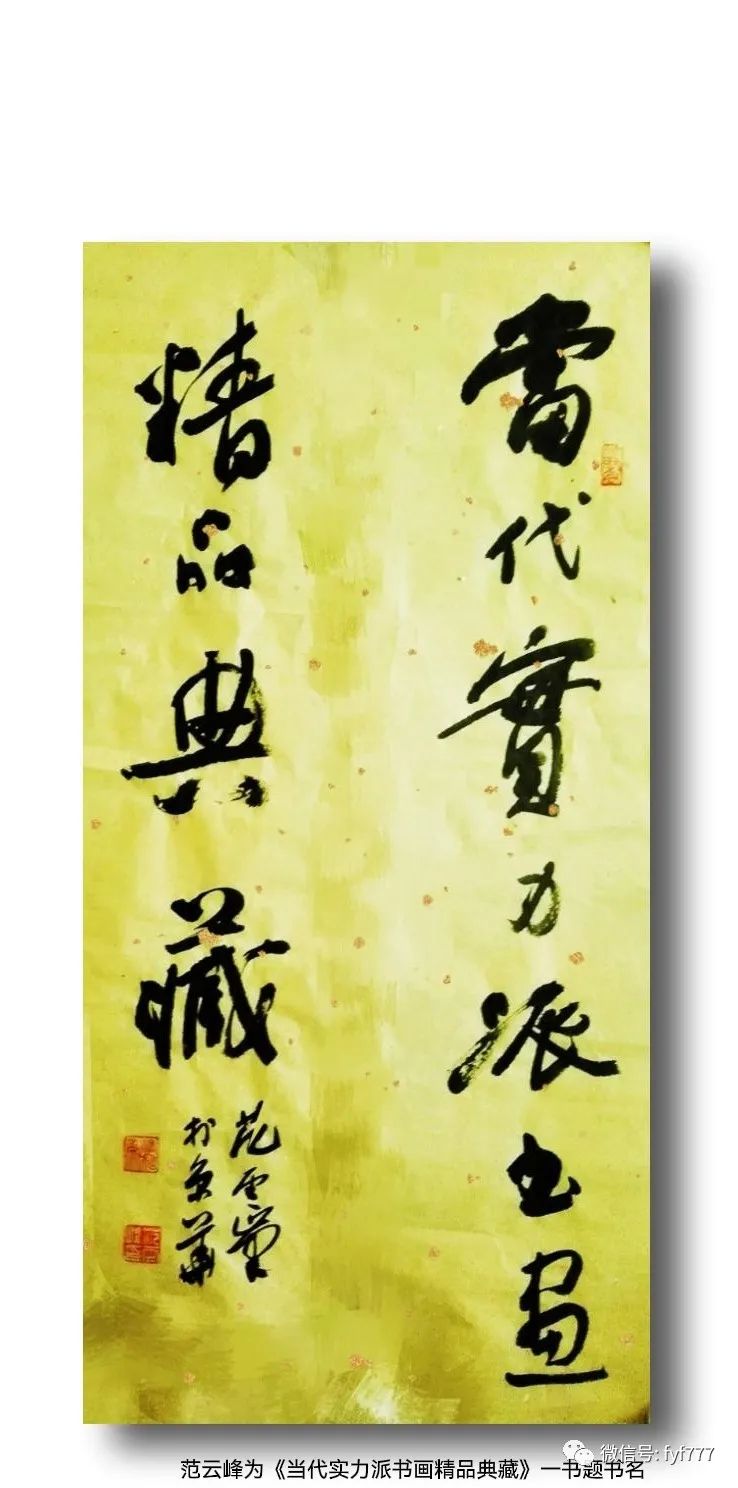 當代實力派书画
精品典藏
范云峰
於京華
微信号: fyf777
范云峰为《当代实力派书画精品典藏》一书题书名